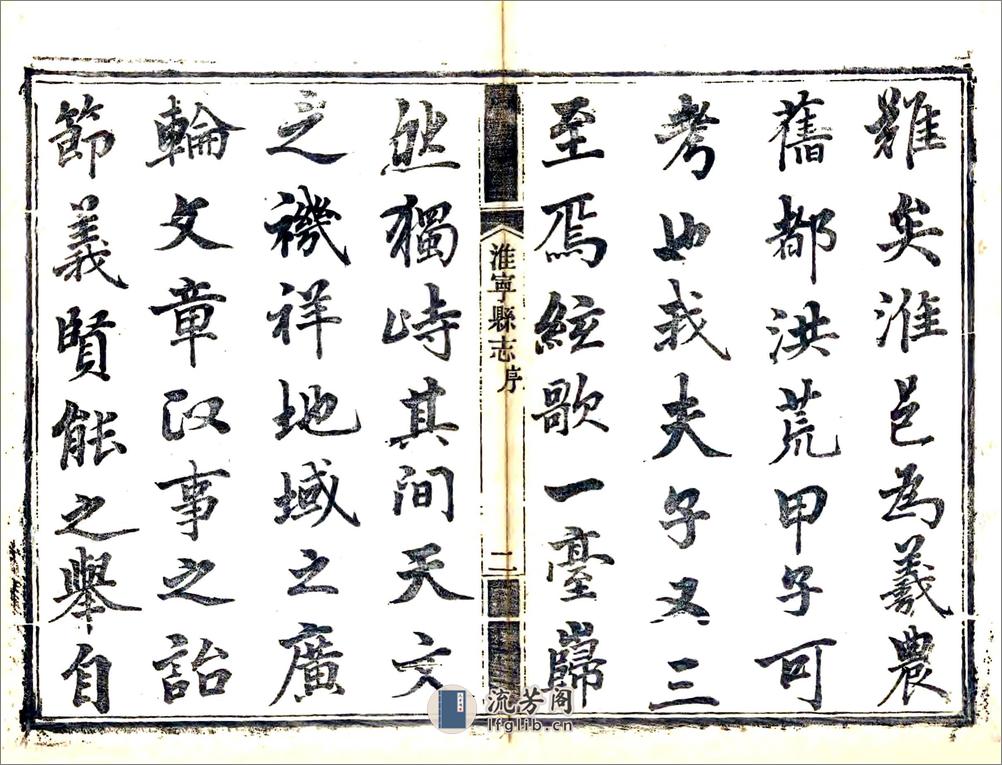 難矣淮邑為羲農
舊都洪荒甲子可
考也我夫子又三
至焉絃歌一臺巋
淮寧縣志 序 二
然獨峙其間天文
之禨祥地域之廣
輪文章政事之詒
節義賢能之舉自
流芳阁
lfglib.cn